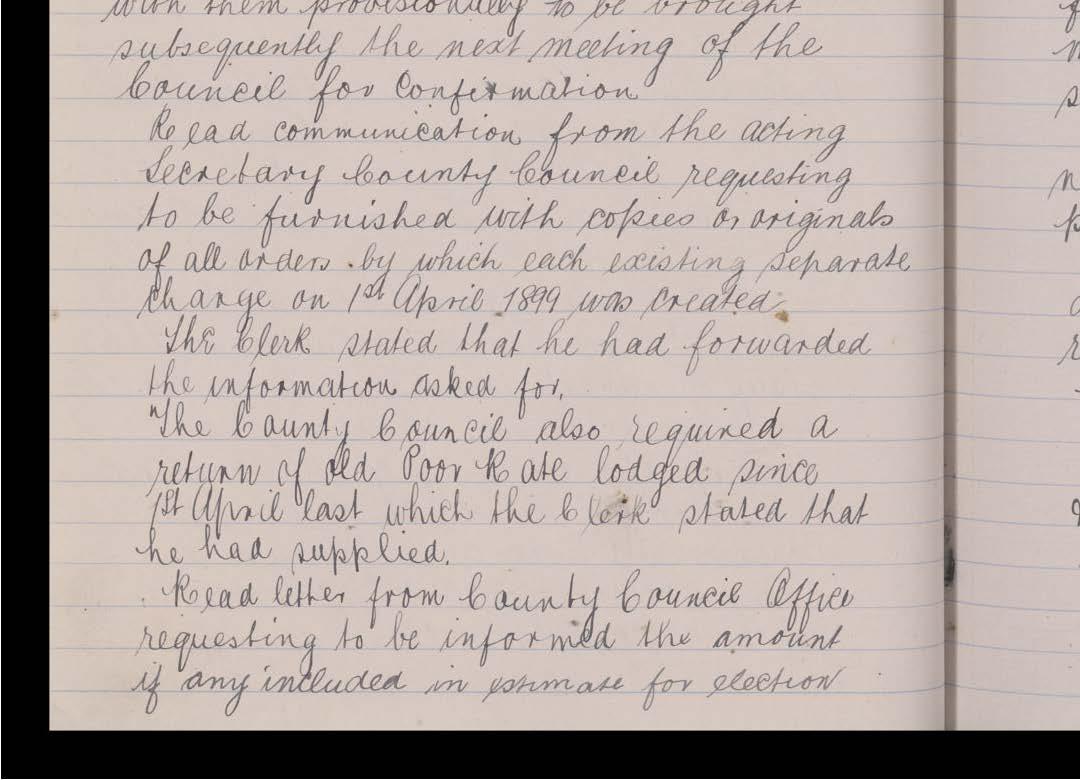 with them provisionally to be brought
subsequently the next meeting of the
Council for Confirmation
Read communication from the acting
Secretary County Council requesting
to be furnished with copies or originals
of all orders by which each existing separate
charge on 1st April 1899 was created.
The Clerk stated that he had forwarded
the information asked for.
"The County Council also required a
return of old Poor Rate lodged since
1st April last which the Clerk stated that
he had supplied.
Read letter from County Council Office
requesting to be informed the amount
if any included in estimate for election